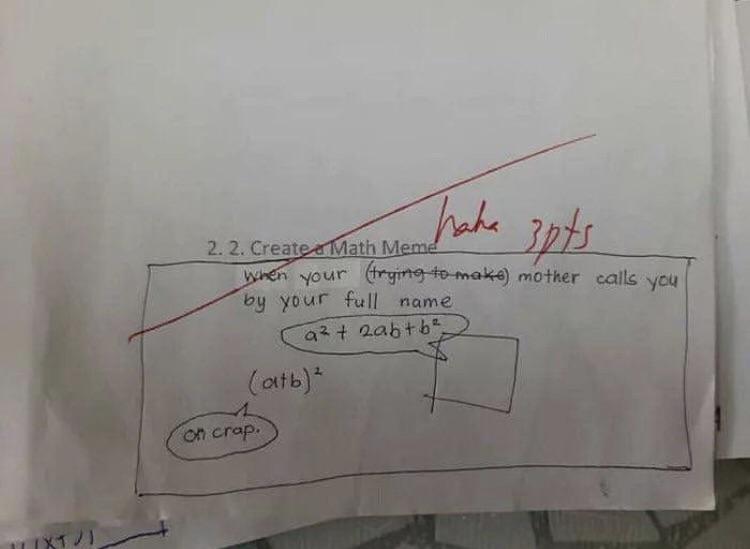 haha 3pts
2. 2. Create a Math Meme
when your (trying to make) mother calls you
by your full name
a² + 2ab + b²
(a+b)²
oh crap.